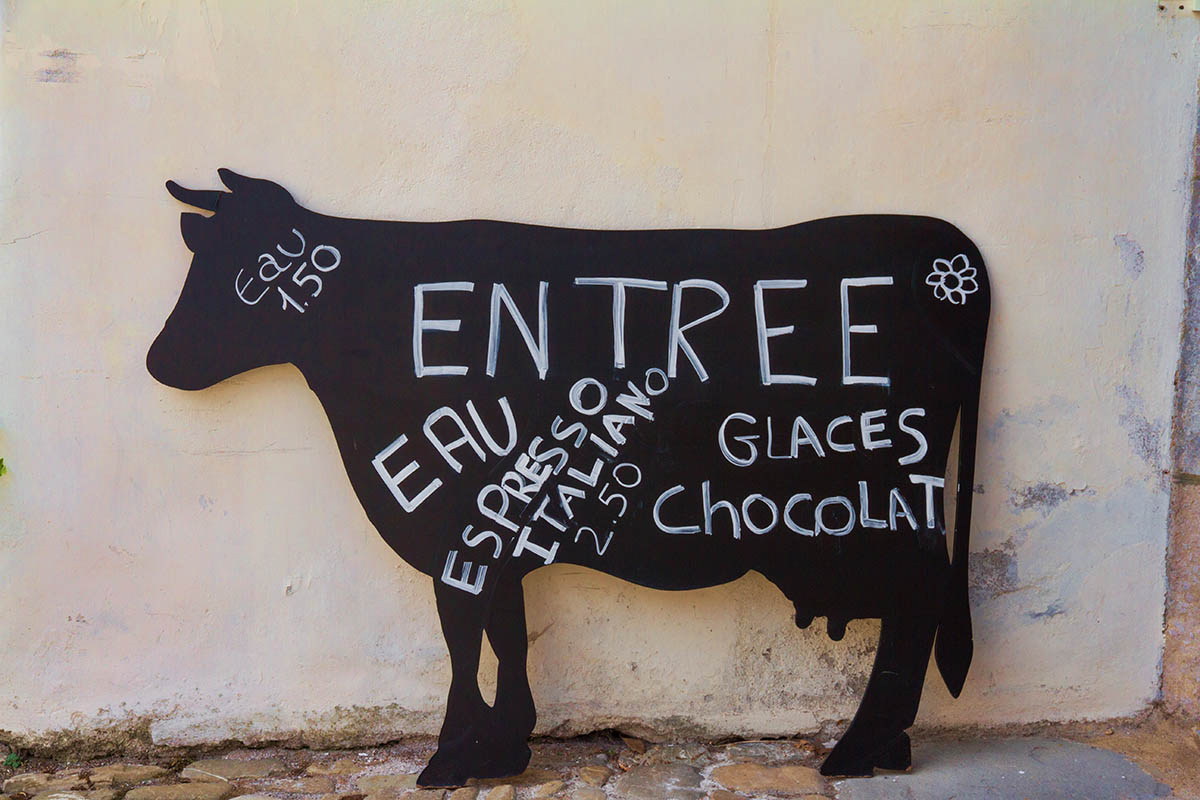 Eau
1.50
ENTREE
EAU
ESPRESSO
ITALIANO
2.50
GLACES
CHOCOLAT